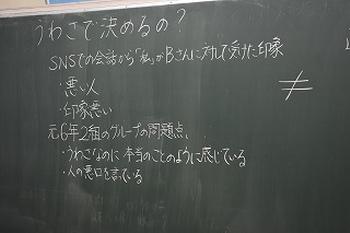 うわさで決めるの？
SNSでの会話から「私」がBさんに対して受けた印象
・悪い人
・印象悪い
≠
元6年2組のグループの問題点
・うわさなのに本当のことのように感じている
・人の悪口を言っている